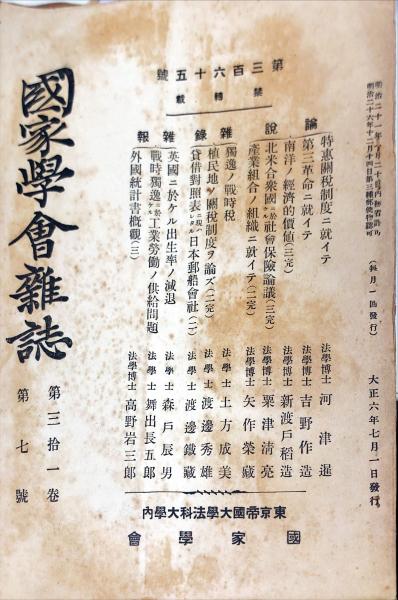 明治二十一年月二十日內務省許可
明治二十六年十二月十四日第三種郵便物認可
(每月一回發行)
大正六年七月一日發行
第三百六十五號
禁轉載
論說
特惠關稅制度ニ就イテ 法學博士 河津暹
第三革命ニ就イテ 法學博士 吉野作造
南洋ノ經濟的價値(三完) 法學博士 新渡戶稻造
北米合衆國ニ於ケル社會保險論議(三完) 法學博士 粟津淸亮
產業組合ノ組織ニ就イテ(二完) 法學博士 矢作榮藏
雜錄
獨逸ノ戰時稅 法學士 土方成美
植民地ノ關稅制度ヲ論ズ(二完) 法學士 渡邊秀雄
貸借對照表ニ現ハレタル日本郵船會社(二) 法學士 渡邊鐵藏
雜報
英國ニ於ケル出生率ノ減退 法學士 森戶辰男
戰時獨逸ニ於ケル工業勞働ノ供給問題 法學士 舞出長五郎
外國統計書槪觀(三) 法學博士 高野岩三郎
東京帝國大學法科大學內
國家學會
國家學會雜誌
第三拾一卷
第七號